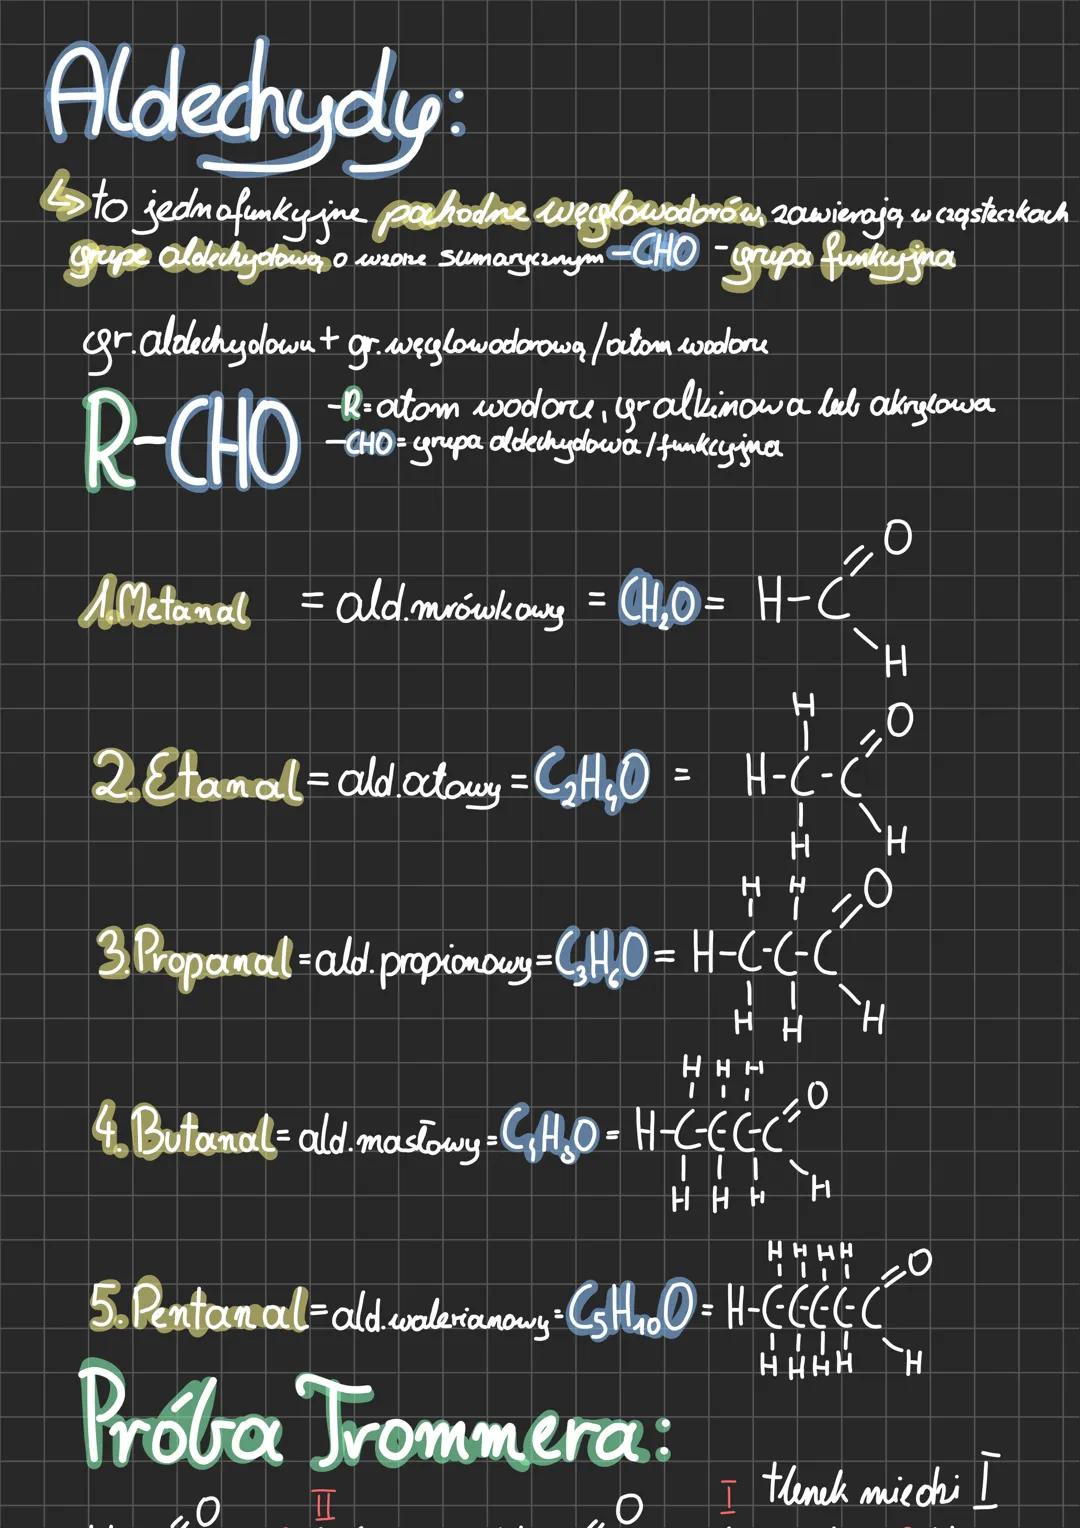 Aldechydy:
↳ to jednofunkyjne pochodne węglowodorów, zawierają w cząsteczkach
grupę aldechydową o wzorze sumarycznym -CHO - grupa funkcyjna
gr. aldechydowa + gr. węglowodorową / atom wodoru
R-CHO
-R = atom wodoru, gr alkinowa lub akrylowa
-CHO = grupa aldechydowa / funkcyjna
1. Metanal = ald. mrówkowy = CH₂O = H-C=O H
2. Etanal = ald. atowy = C₂H₄O = H-C-C=O H H H
3. Propanal = ald. propionowy = C₃H₆O = H-C-C-C=O H H H H H
4. Butanal = ald. masłowy = C₄H₈O = H-C-C-C-C=O H H H H H H H
5. Pentanal = ald. walerianowy = C₅H₁₀O = H-C-C-C-C-C=O H H H H H H H H H
Próba Trommera:
O II O I tlenek miedzi I